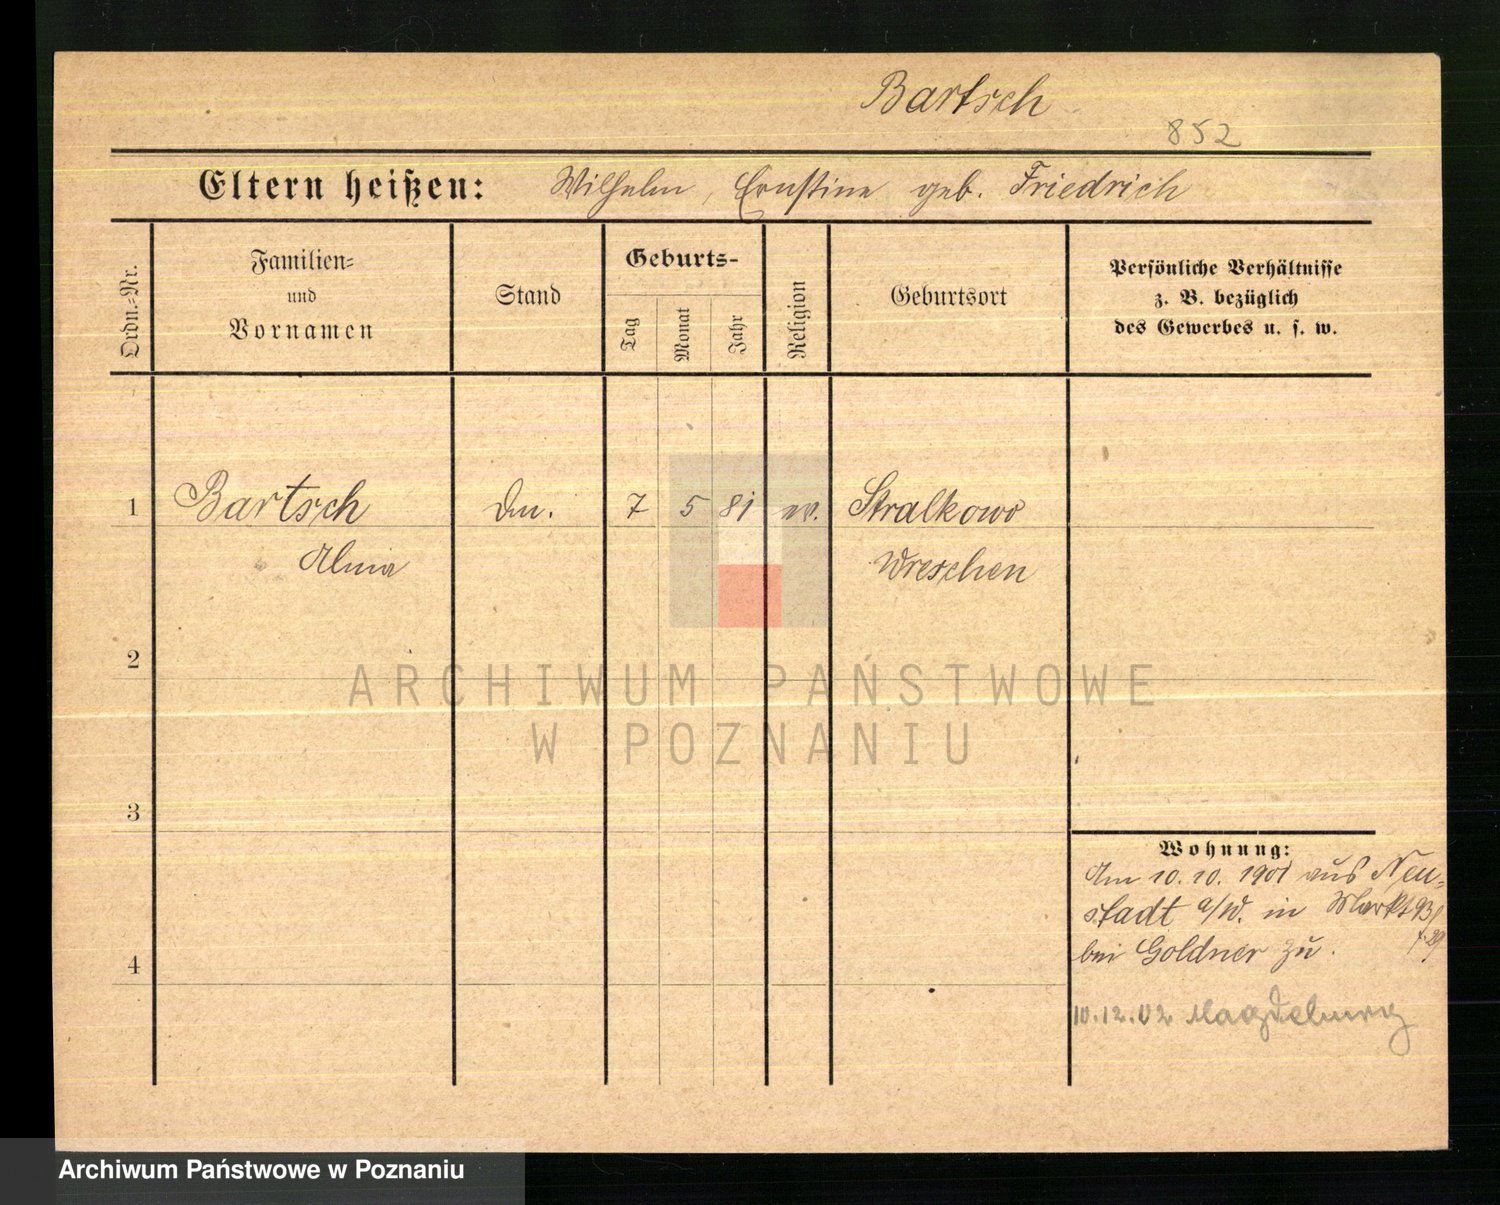 Bartsch
852
Eltern heißen: Wilhelm, Ernstine geb. Friedrich
Ordn.=Nr.
Familien=
und
Vornamen
Stand
Geburts-
Tag
Monat
Jahr
Religion
Geburtsort
Persönliche Verhältnisse
z. B. bezüglich
des Gewerbes u. s. w.
1 Bartsch 7 5 81 ev. Stralkowo
Alma Wreschen
2
ARCHIWUM PAŃSTWOWE
W POZNANIU
3
Wohnung:
Am 10. 10. 1901 aus Neu=
stadt a/W. in Markt 93
bei Goldner zu.
4
10.12.02 Magdeburg
Archiwum Państwowe w Poznaniu